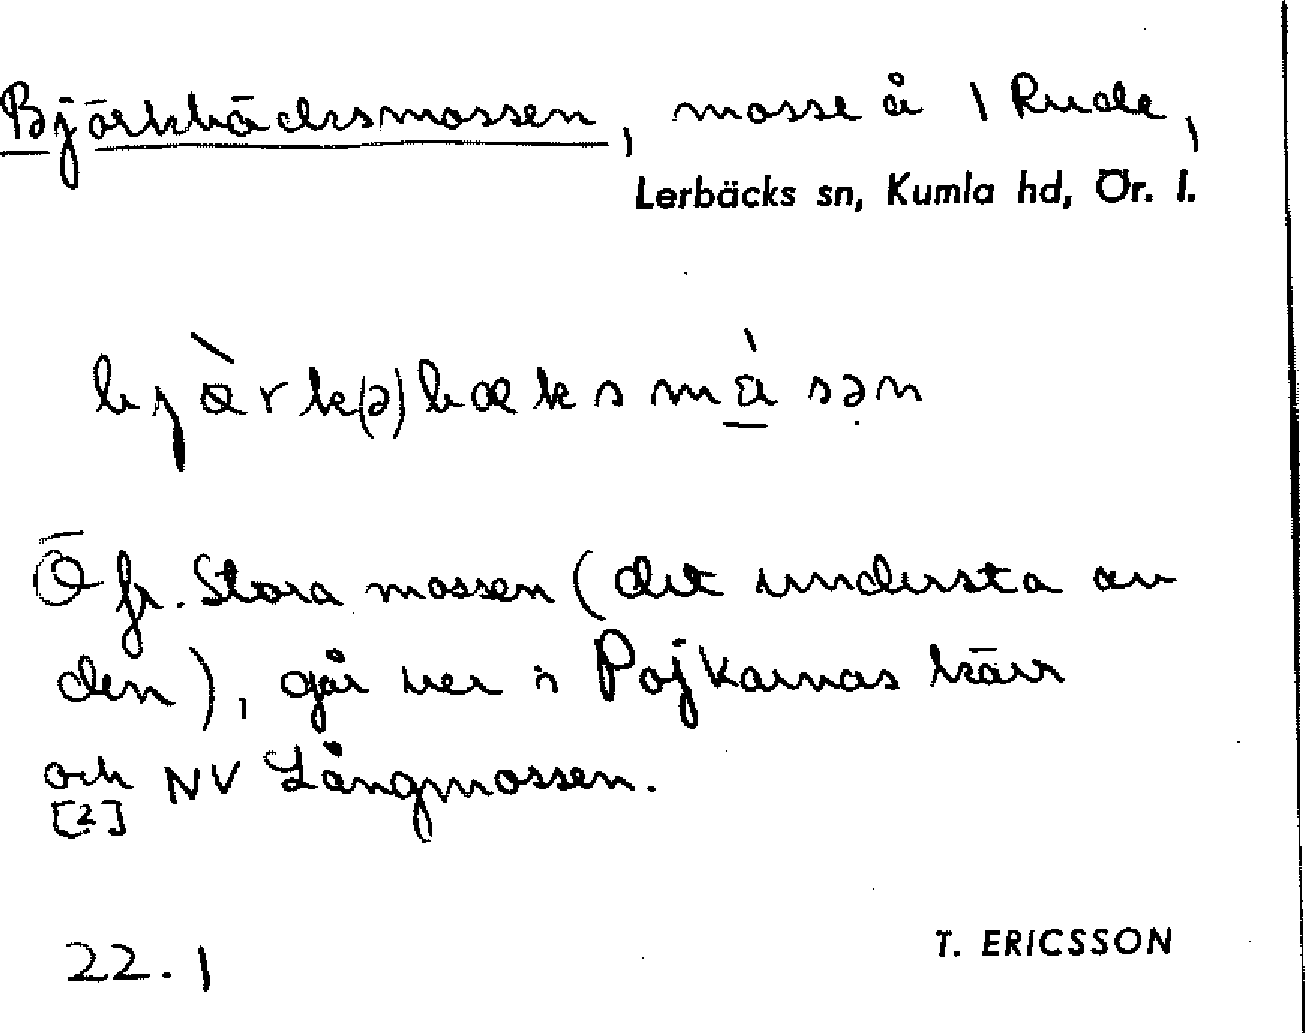 Björkbäcksmossen, mosse å 1 Rude,
Lerbäcks sn, Kumla hd, Ör. l.
bjæ̀rk(ə)bæksmå̀sən
Ö fr. Stora mossen (det understa av
den), går ner i Pojkarnas kärr
och NV Långmossen.
[2]
22.1
T. ERICSSON